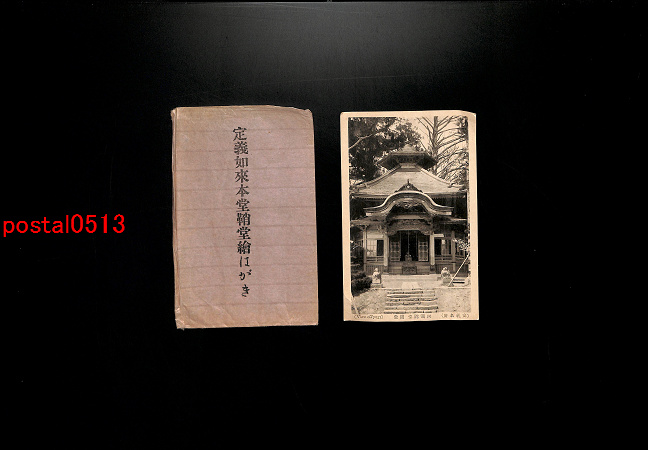 定義如來本堂鞘堂繪はがき
postal0513